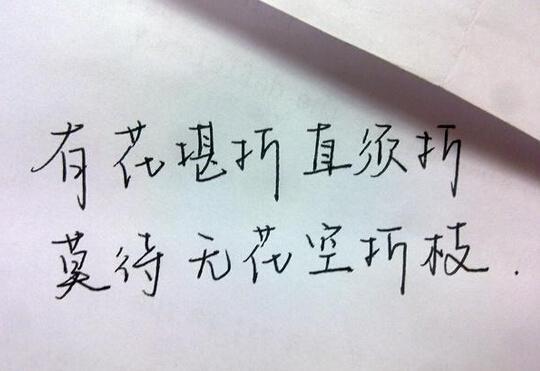 有花堪折直须折
莫待无花空折枝.